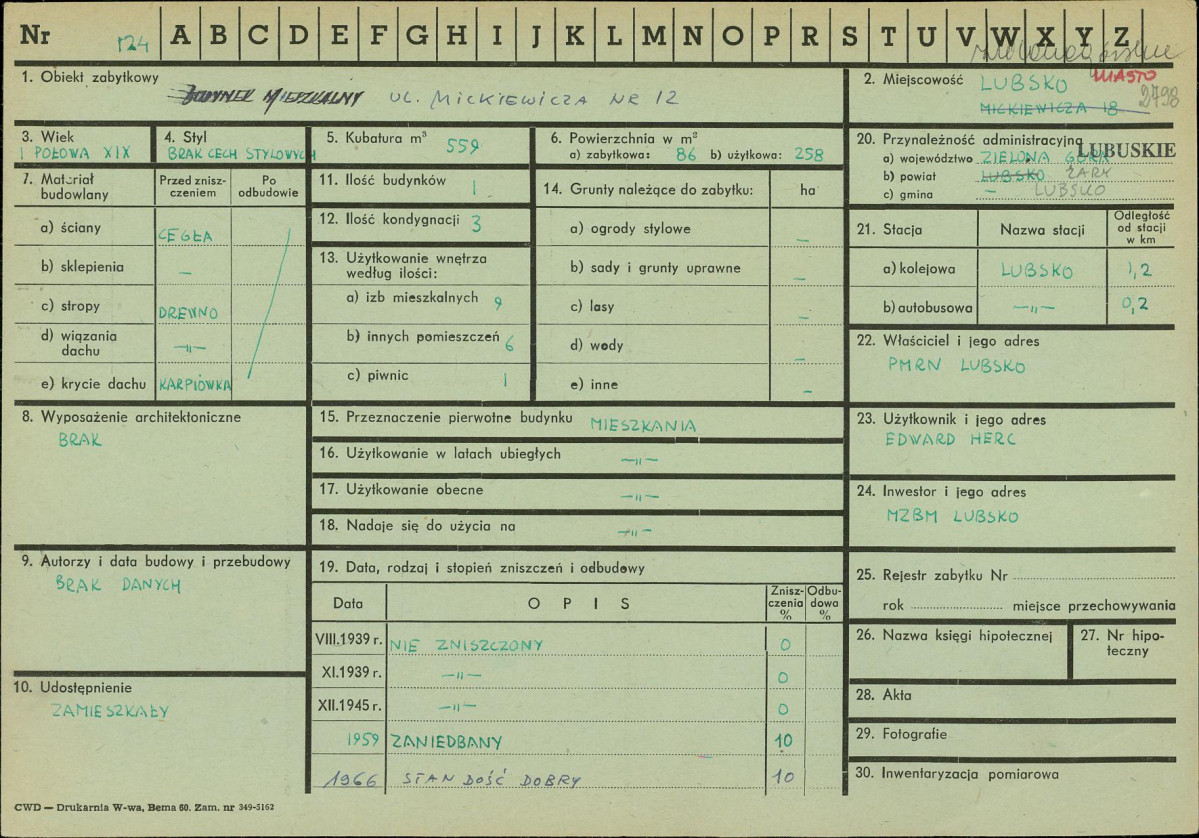 Nr 124 A B C D E F G H I J K L M N O P R S T U V W X Y Z
1. Obiekt zabytkowy
BUDYNEK MIESZKALNY UL. MICKIEWICZA NR 12
2. Miejscowość LUBSKO MIASTO
MICKIEWICZA 18 2798
3. Wiek
I POŁOWA XIX
4. Styl
BRAK CECH STYLOWYCH
5. Kubatura m³ 559
6. Powierzchnia w m²
a) zabytkowa: 86 b) użytkowa: 258
20. Przynależność administracyjna
LUBUSKIE
a) województwo ZIELONA GÓRA
b) powiat LUBSKO ŻARY
c) gmina – LUBSKO
7. Materiał budowlany
Przed zniszczeniem
Po odbudowie
a) ściany CEGŁA
b) sklepienia –
c) stropy DREWNO
d) wiązania dachu –"–
e) krycie dachu KARPIÓWKA
11. Ilość budynków 1
12. Ilość kondygnacji 3
13. Użytkowanie wnętrza
według ilości:
a) izb mieszkalnych 9
b) innych pomieszczeń 6
c) piwnic 1
14. Grunty należące do zabytku: ha
a) ogrody stylowe –
b) sady i grunty uprawne –
c) lasy –
d) wody –
e) inne –
21. Stacja
Nazwa stacji
Odległość od stacji w km
a) kolejowa LUBSKO 1,2
b) autobusowa –"– 0,2
22. Właściciel i jego adres
PMRN LUBSKO
8. Wyposażenie architektoniczne
BRAK
15. Przeznaczenie pierwotne budynku MIESZKANIA
16. Użytkowanie w latach ubiegłych –"–
17. Użytkowanie obecne –"–
18. Nadaje się do użycia na –"–
23. Użytkownik i jego adres
EDWARD HERC
24. Inwestor i jego adres
MZBM LUBSKO
9. Autorzy i data budowy i przebudowy
BRAK DANYCH
19. Data, rodzaj i stopień zniszczeń i odbudowy
Data
O P I S
Zniszczenia %
Odbudowa %
VIII.1939 r. NIE ZNISZCZONY 0
XI.1939 r. –"– 0
XII.1945 r. –"– 0
1959 ZANIEDBANY 10
1966 STAN DOŚĆ DOBRY 10
25. Rejestr zabytku Nr
rok miejsce przechowywania
26. Nazwa księgi hipotecznej
27. Nr hipoteczny
10. Udostępnienie
ZAMIESZKAŁY
28. Akta
29. Fotografie
30. Inwentaryzacja pomiarowa
CWD — Drukarnia W-wa, Bema 60. Zam. nr 349-5162